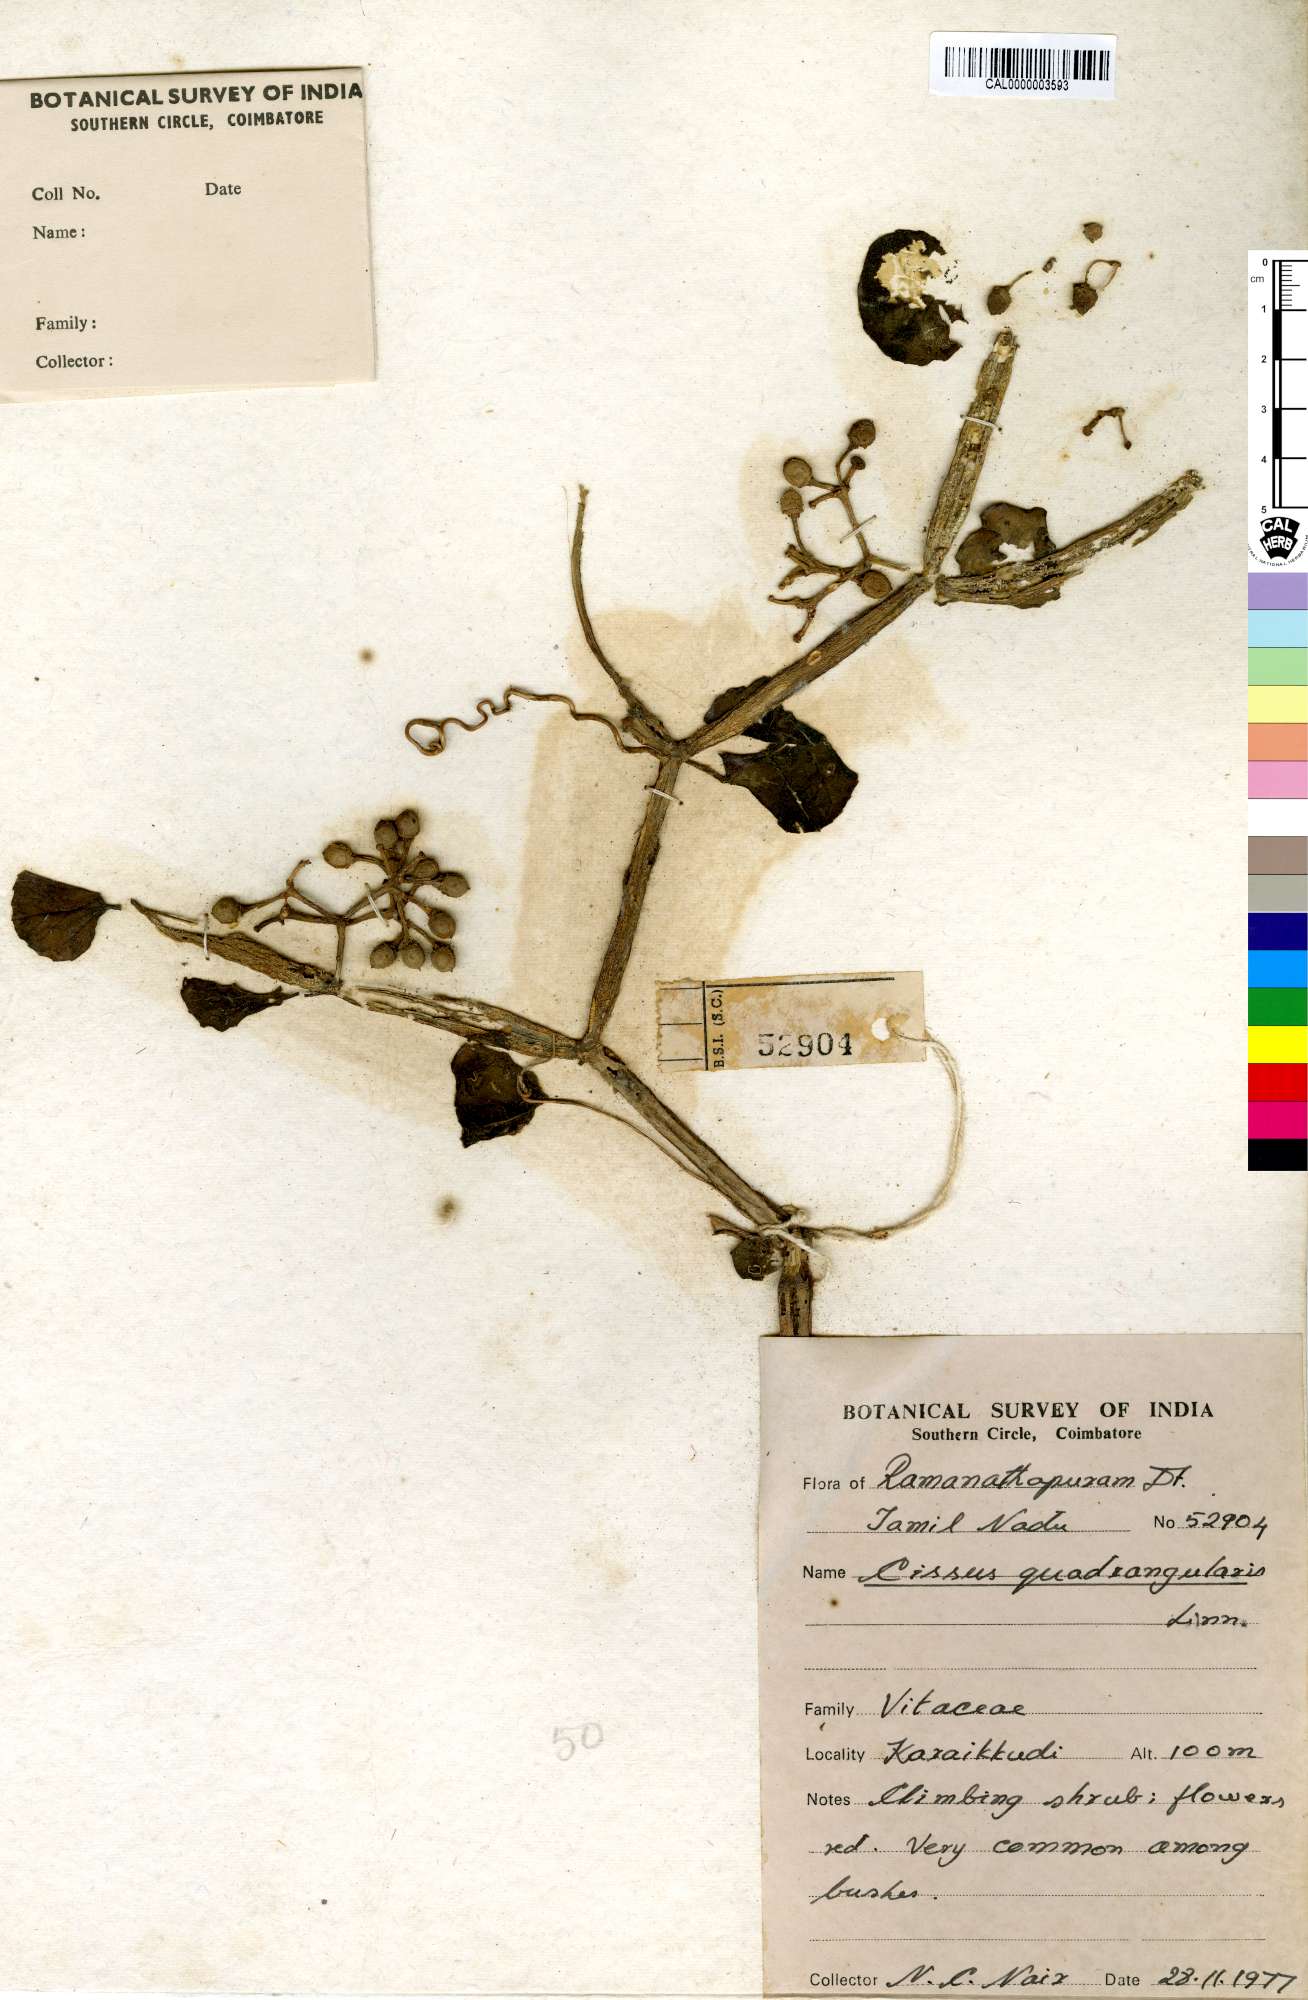 CAL0000003593
BOTANICAL SURVEY OF INDIA
SOUTHERN CIRCLE, COIMBATORE
Coll No. Date
Name :
Family :
Collector :
0
cm
1
2
3
4
5
CAL
HERB
B.S.I. (S.C.)
52904
50
BOTANICAL SURVEY OF INDIA
Southern Circle, Coimbatore
Flora of Ramanathapuram Dt.
Tamil Nadu No 52904
Name Cissus quadrangularis
Linn.
Family Vitaceae
Locality Karaikkudi Alt. 100m
Notes Climbing shrub; flowers
red. Very common among
bushes.
Collector N. C. Nair Date 28.11.1977